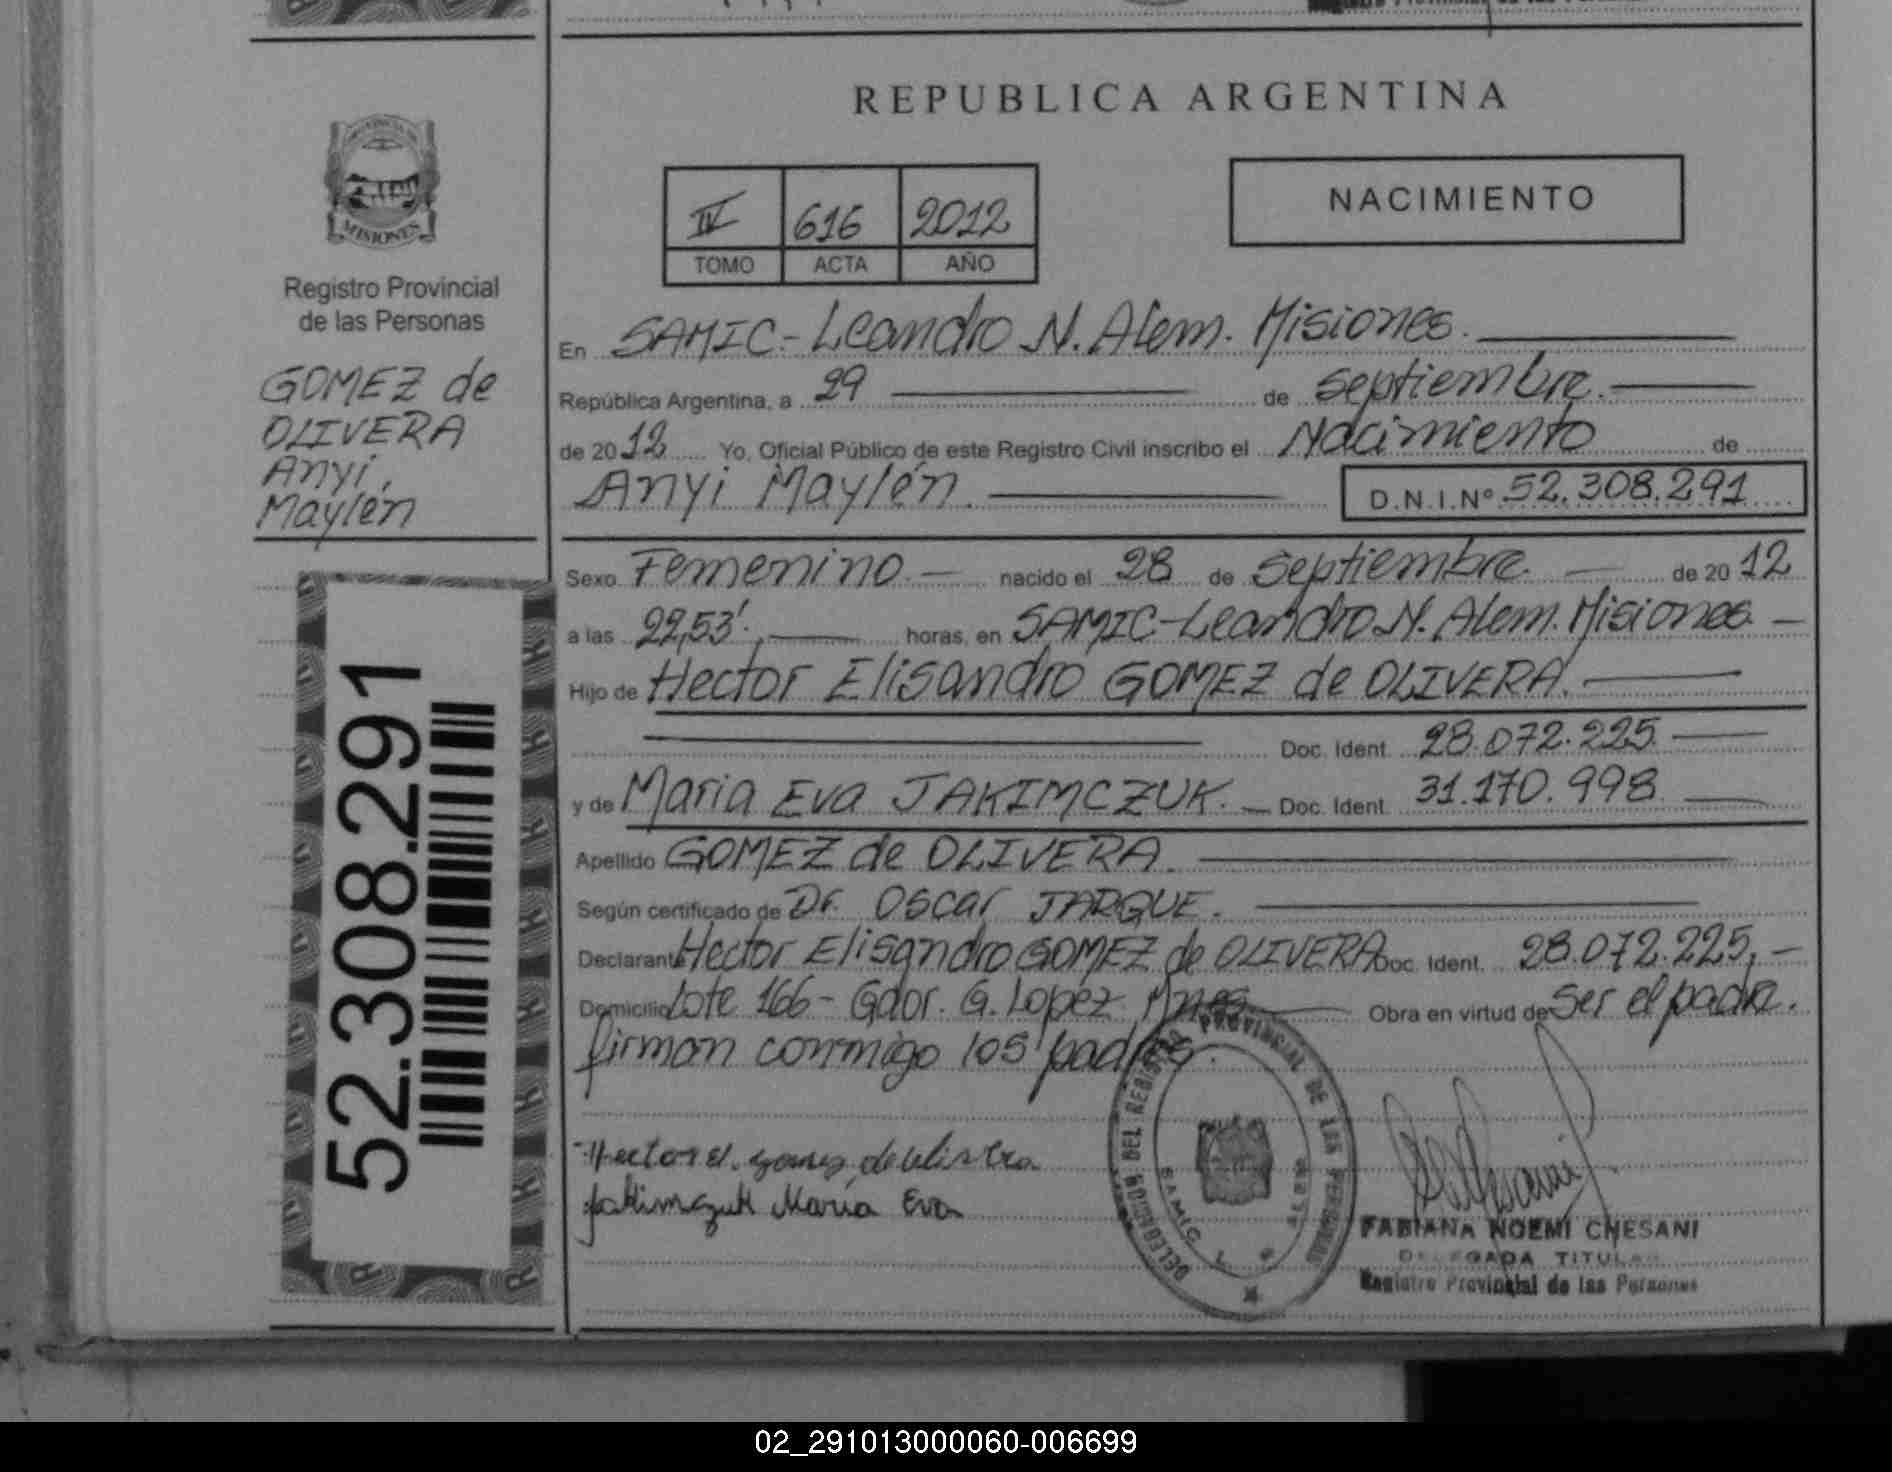 REPUBLICA ARGENTINA
PROVINCIA DE
MISIONES
Registro Provincial
de las Personas
GOMEZ de
OLIVERA
Anyi
Maylén
52.308.291
IV 616 2012
TOMO ACTA AÑO
NACIMIENTO
En SAMIC-Leandro N. Alem. Misiones.
República Argentina, a 29 de septiembre.
de 2012 Yo, Oficial Público de este Registro Civil inscribo el Nacimiento de
Anyi Maylén. D.N.I.Nº 52.308.291
Sexo Femenino. nacido el 28 de septiembre. de 2012
a las 22,53'. horas, en SAMIC-Leandro N. Alem. Misiones.
Hijo de Hector Elisandro GOMEZ de OLIVERA.
Doc. Ident. 28.072.225
y de Maria Eva JAKIMCZUK. Doc. Ident. 31.170.998
Apellido GOMEZ de OLIVERA.
Según certificado de Dr. Oscar JARQUE.
Declarante Hector Elisandro GOMEZ de OLIVERA Doc. Ident. 28.072.225,
Domicilio Lote 166 - Gdor. G. Lopez Mnes Obra en virtud de ser el padre.
firman conmigo los padres.
Hector E. gomez de olivera
Jakimczuk María Eva
DELEGACION DEL REGISTRO PROVINCIAL DE LAS PERSONAS
SAMIC L. ALEM
FABIANA NOEMI CHESANI
DELEGADA TITULAR
Registro Provincial de las Personas
02_291013000060-006699